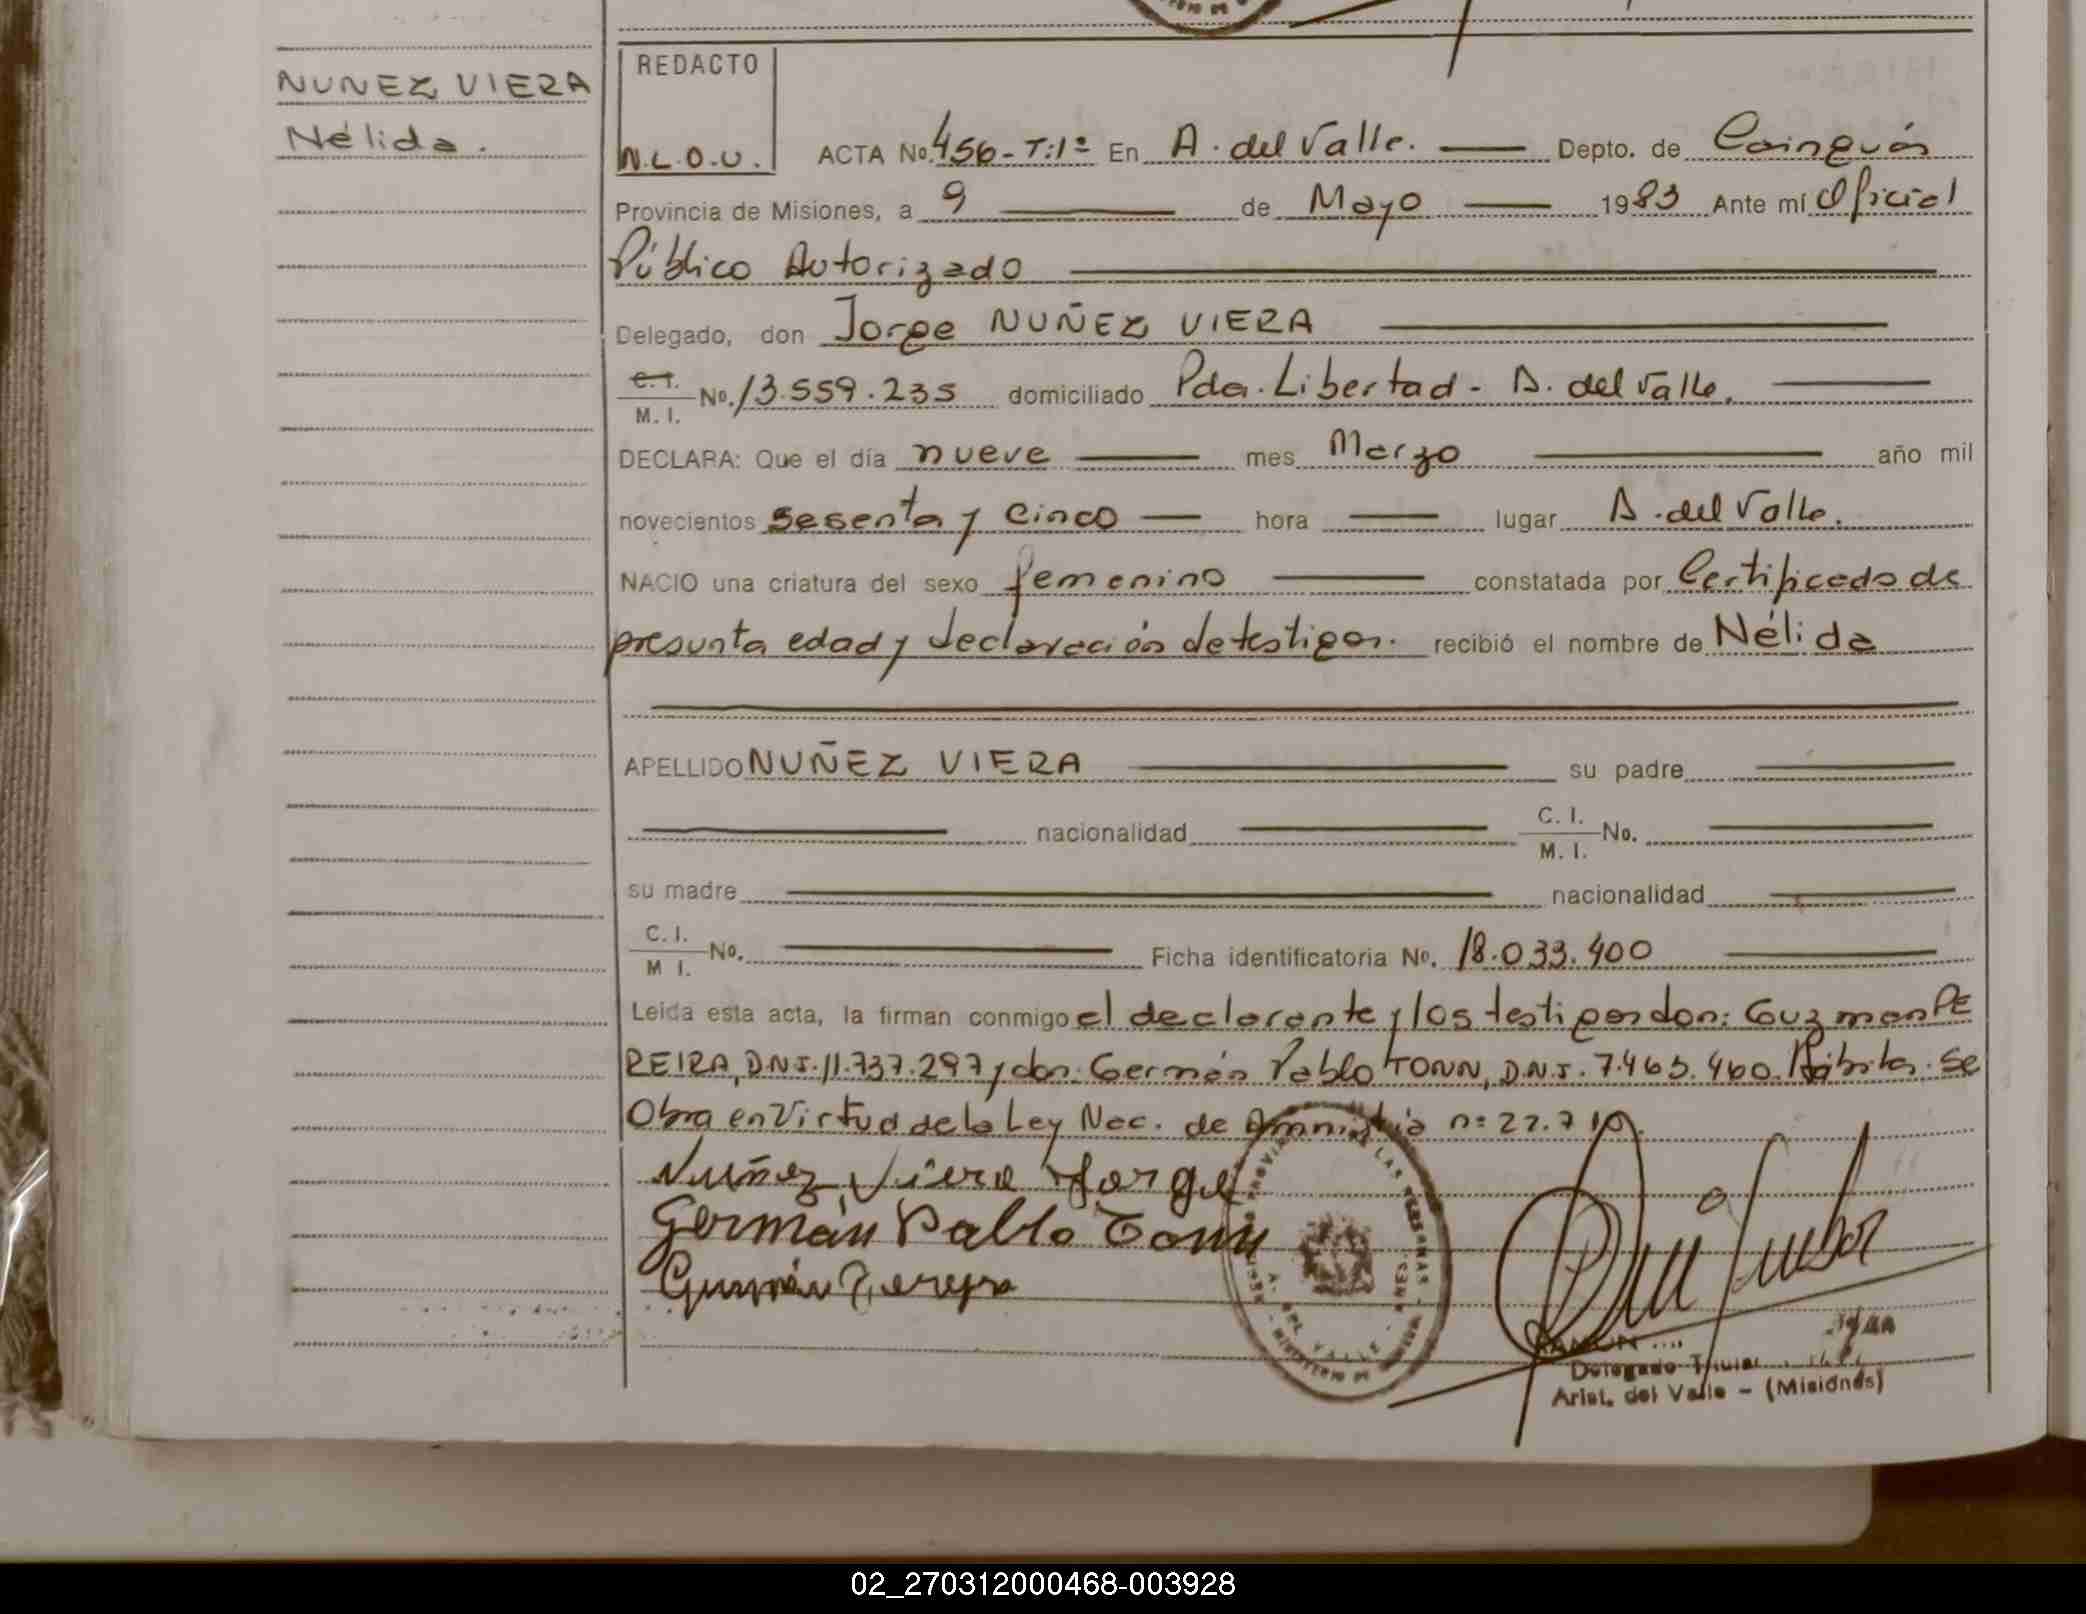 NUNEZ VIERA
Nélida.
REDACTO
N.L.O.U.
ACTA No. 456-T:1º En A. del Valle. Depto. de Cainguás
Provincia de Misiones, a 9 de Mayo 1983 Ante mí Oficial
Público Autorizado
Delegado, don Jorge NUÑEZ VIERA
C. I.
M. I. No. 13.559.235 domiciliado Pda. Libertad - A. del Valle.
DECLARA: Que el día nueve mes Marzo año mil
novecientos sesenta y cinco hora lugar A. del Valle.
NACIO una criatura del sexo femenino constatada por Certificado de
presunta edad y declaración de testigos. recibió el nombre de Nélida
APELLIDO NUÑEZ VIERA su padre
nacionalidad C. I.
M. I. No.
su madre nacionalidad
C. I.
M I. No. Ficha identificatoria No. 18.033.400
Leída esta acta, la firman conmigo el declarante y los testigos don: Guzman PE
REIRA, D.N.I. 11.737.297 y don: Germán Pablo TONN, D.N.I. 7.463.460. Hábiles. Se
Obra en Virtud de la Ley Nac. de Amnistía nº 22.710.
Nuñez Viera Jorge
Germán Pablo Tonn
Guzmán Pereyra
RAMON
Delegado Titular
Arist. del Valle - (Misiones)
02_270312000468-003928